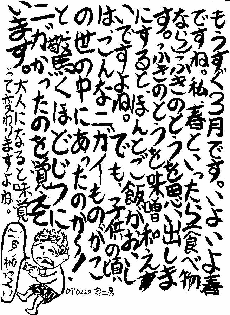 もうすぐ3月です。いよいよ春
ですね。私、春といったら食べ物
ならふきのとうを思い出しま
す。ふきのとうを味噌和え
にするとほんとご飯がおいし
いですよね。でも、子供の頃
は、こんなニガイものがこ
の世の中にあったのかー!
と驚くほどじつに
ニガかったのを覚えて
います。
大人になると味覚
って変わりますよね。